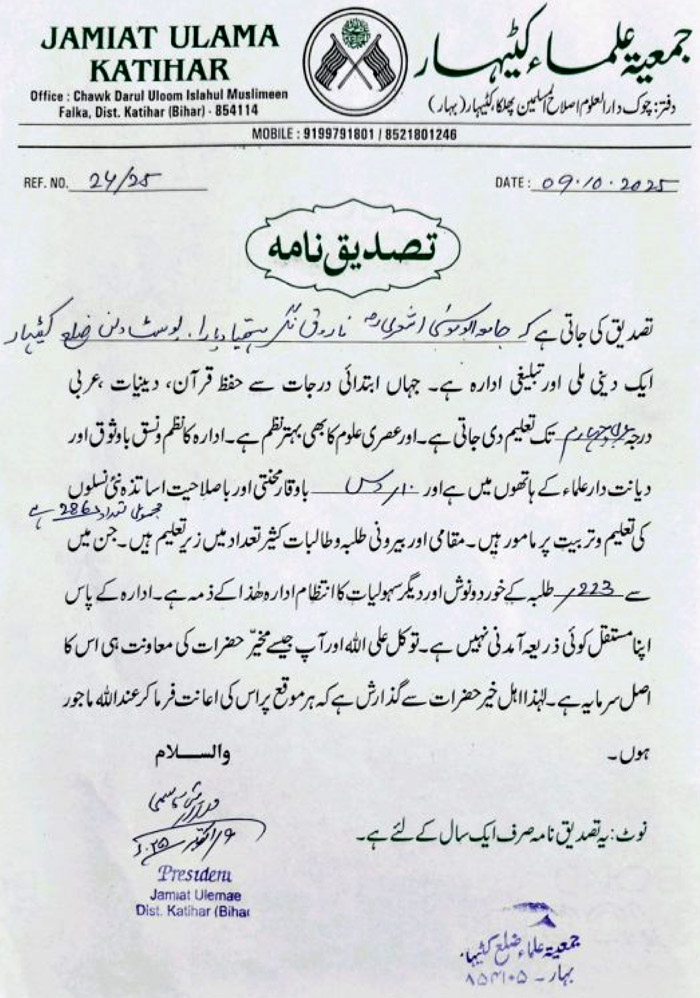 JAMIAT ULAMA
KATIHAR
Office : Chawk Darul Uloom Islahul Muslimeen
Falka, Dist. Katihar (Bihar) - 854114
جمعیۃ علماء کٹیہار
دفتر: چوک دارالعلوم اصلاح المسلمین پھلکا، کٹیہار (بہار)
MOBILE : 9199791801 / 8521801246
REF. NO. 24/25
DATE : 09.10.2025
تصدیق نامہ
تصدیق کی جاتی ہے کہ جامعہ ابو موسیٰ اشعریؓ فاروق نگر ہتھیا دیارا، پوسٹ دلن ضلع کٹیہار
ایک دینی ملی اور تبلیغی ادارہ ہے۔ جہاں ابتدائی درجات سے حفظ قرآن، دینیات ،عربی
درجہ عربی چہارم تک تعلیم دی جاتی ہے۔ اور عصری علوم کا بھی بہتر نظم ہے۔ ادارہ کا نظم و نسق باوثوق اور
دیانت دار علماء کے ہاتھوں میں ہے اور ۱۰/دس باوقار محنتی اور باصلاحیت اساتذہ نئی نسلوں
مجموعی تعداد 286 ہے
کی تعلیم و تربیت پر مامور ہیں۔ مقامی اور بیرونی طلبہ و طالبات کثیر تعداد میں زیر تعلیم ہیں۔ جن میں
سے 223/ طلبہ کے خورد و نوش اور دیگر سہولیات کا انتظام ادارہ ھٰذا کے ذمہ ہے۔ ادارہ کے پاس
اپنا مستقل کوئی ذریعہ آمدنی نہیں ہے۔ توکل علی اللہ اور آپ جیسے مخیّر حضرات کی معاونت ہی اس کا
اصل سرمایہ ہے۔ لہٰذا اہل خیر حضرات سے گذارش ہے کہ ہر موقع پر اس کی اعانت فرما کر عنداللہ ماجور
ہوں۔
والسلام
۹/اکتوبر ۲۰۲۵
President
Jamiat Ulemae
Dist. Katihar (Bihar
نوٹ: یہ تصدیق نامہ صرف ایک سال کے لئے ہے۔
جمعیۃ علماء ضلع کٹیہار
بہار - ۸۵۴۱۰۵